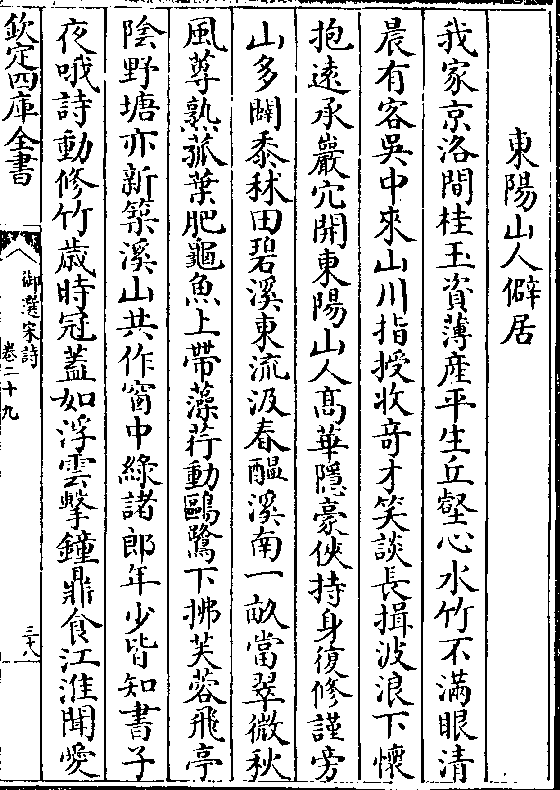 東陽山人僻居
我家京洛間桂玉資薄產平生丘壑心水竹不滿眼清
晨有客吳中來山川指授收奇才笑談長揖波浪下懷
抱遠承巖穴開東陽山人髙華隱豪俠持身復修謹旁
山多闢黍秫田碧溪東流汲春醖溪南一畝當翠微秋
風蓴熟菰葉肥龜魚上帶藻荇動鷗鷺下拂芙蓉飛亭
陰野塘亦新築溪山共作窗中緑諸郎年少皆知書子
夜哦詩動修竹歲時冠蓋如浮雲擊鐘鼎食江淮聞愛
欽定四庫全書
御選宋詩
卷二十九
三八